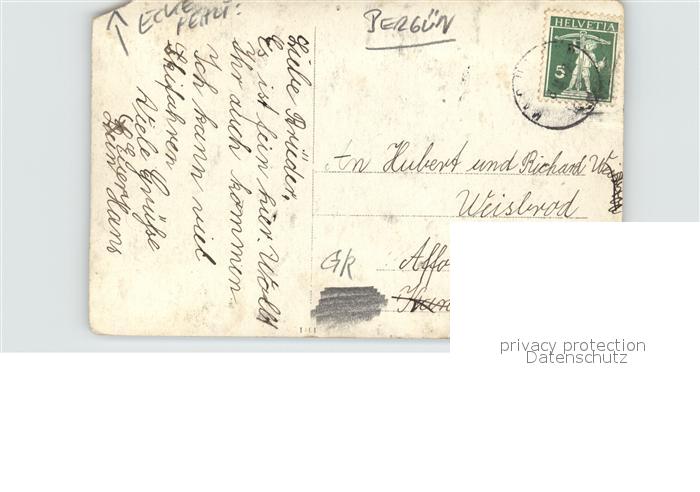 ECKE
FEHLT!
BERGÜN
HELVETIA
5
Liebe Brüder,
Es ist fein hier. Wollt
Ihr auch kommen.
Ich kann viel
Skifahren
Viele Grüße
Euer
Hans
An Hubert und Richard
Weisbrod
Affo
GK
privacy protection
Datenschutz